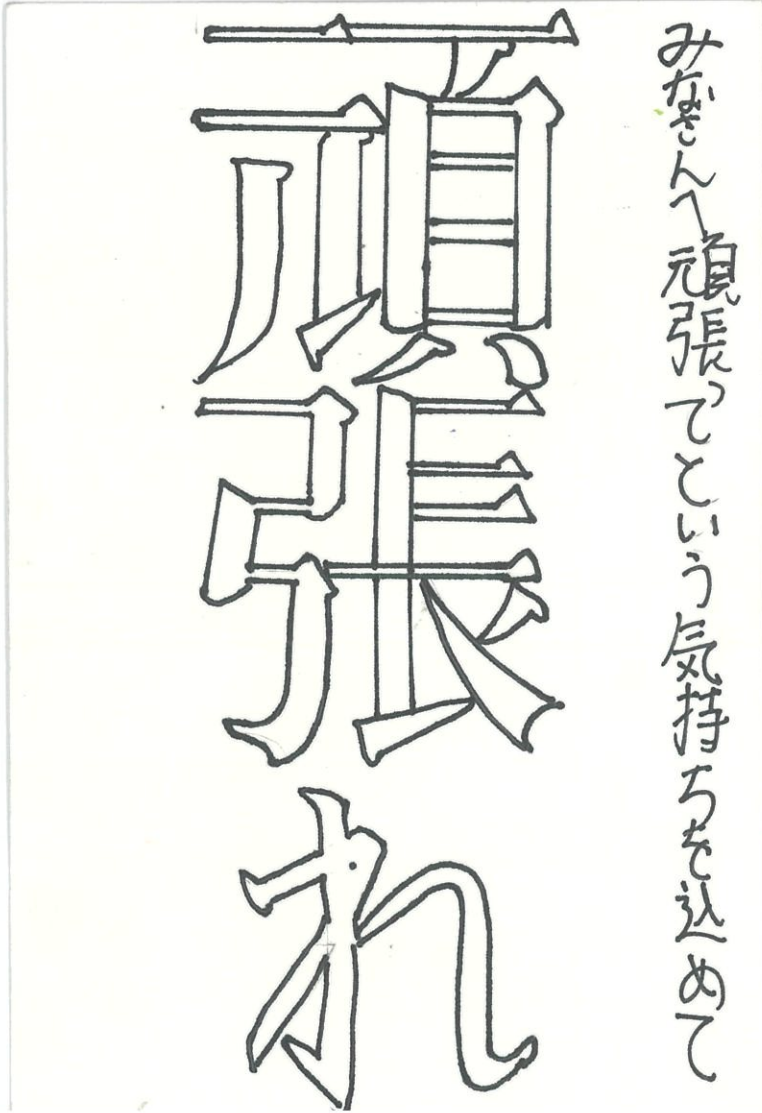 みなさんへ頑張ってという気持ちを込めて
頑張れ